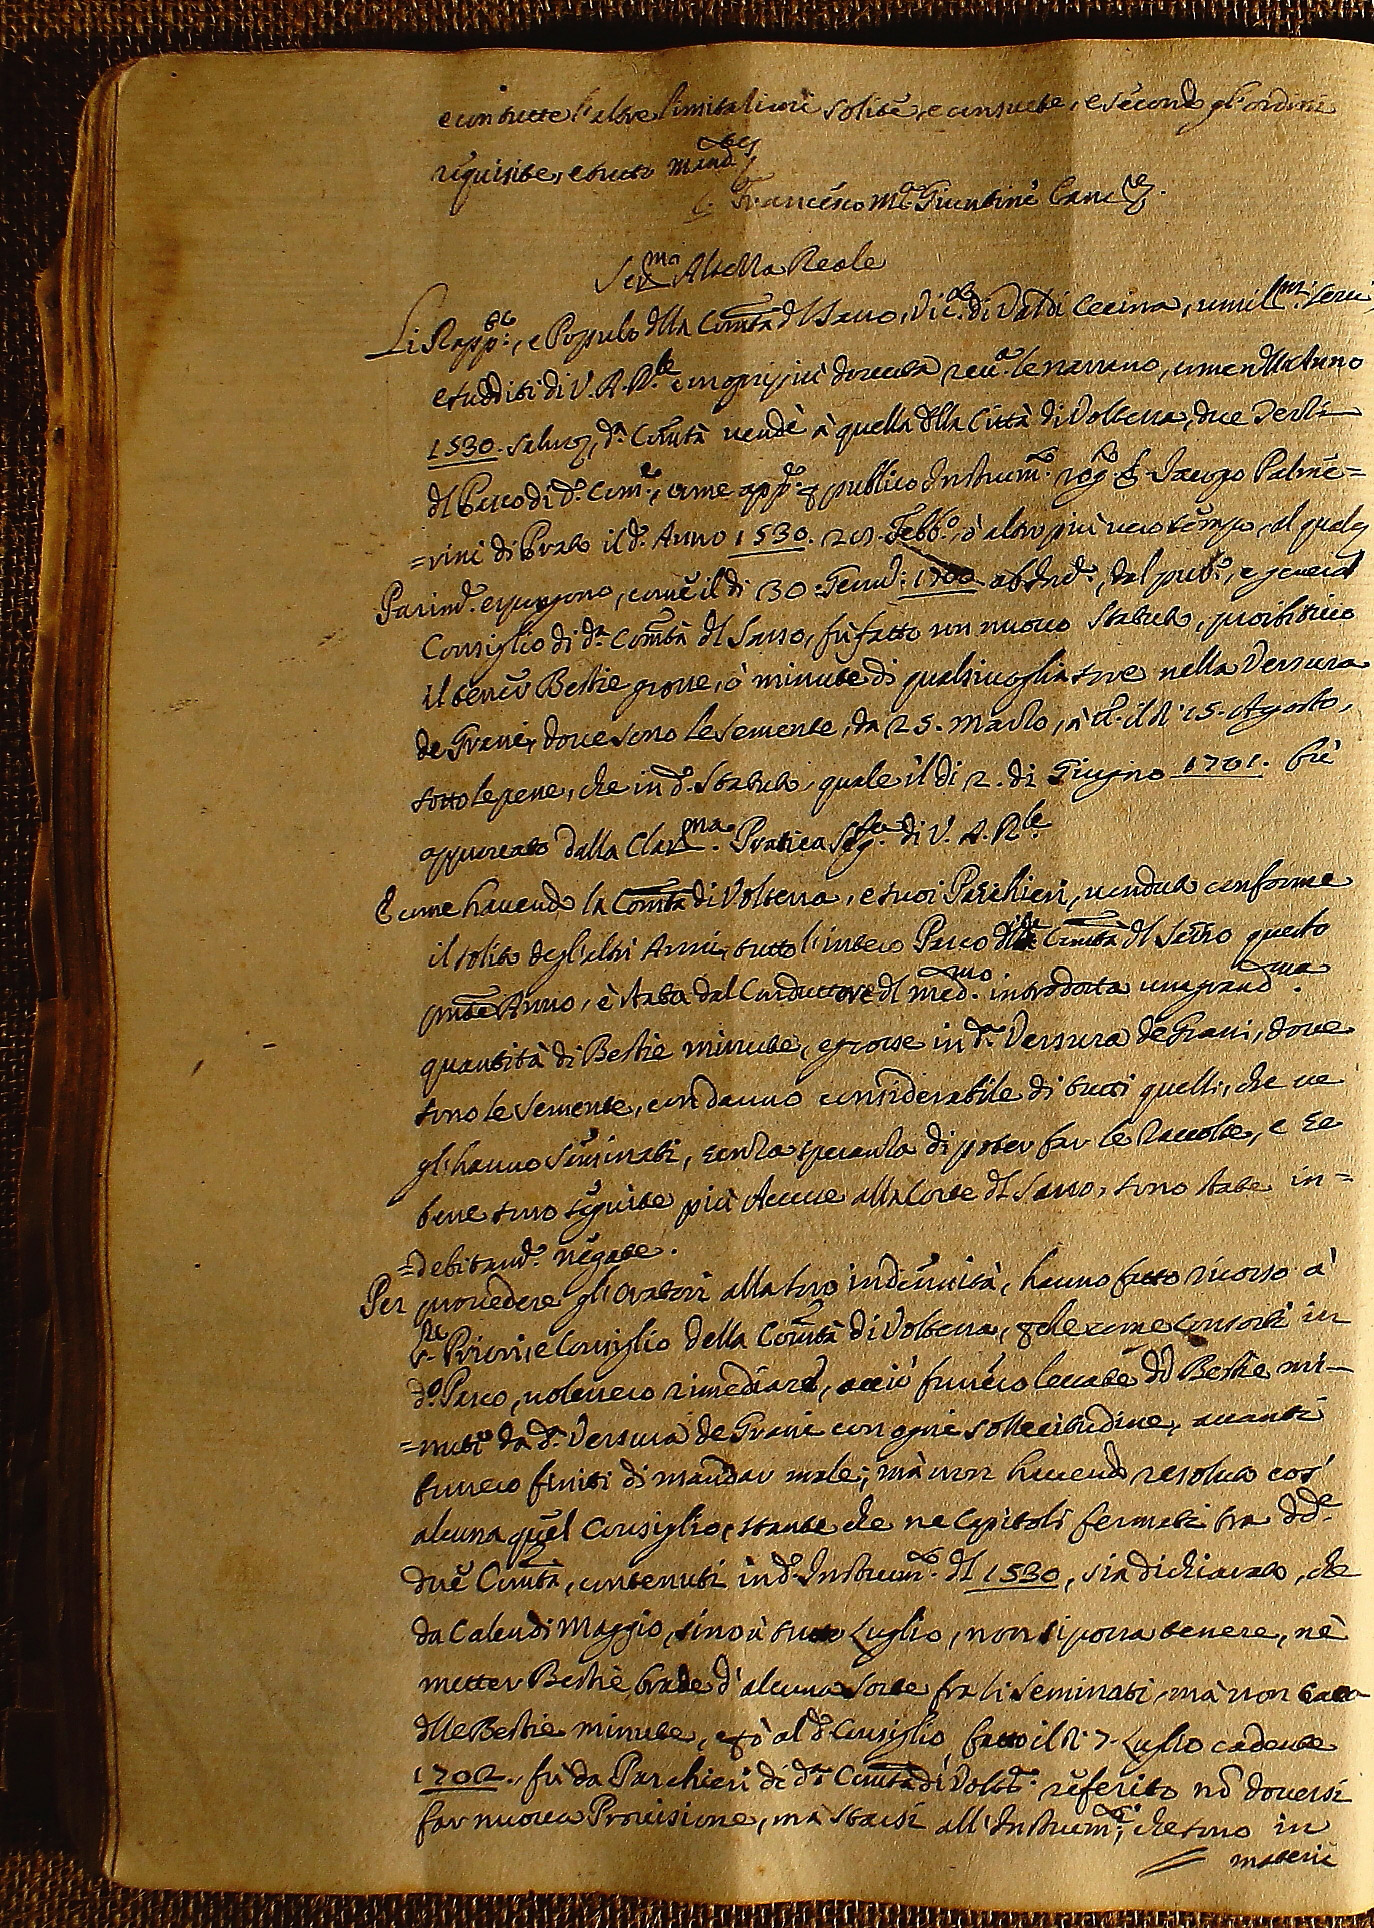 e con tutte l'altre limitazioni solite, e consuete, e secondo gl'ordini
requisite, e tutto mand.
Francesco M.a Giuntini Canc.re
Ser.ma Altezza Reale
Li Rapp.ti, e Popolo dlla Com.tà dl Sasso, Vic.o di Val di Cecina, umil.mi servi,
e sudditi di V. A. R.le con ogni più dovuta reu.a le narrano, come nell'Anno
1530. d.a Com.tà vendè à quella dlla Città di Volterra, due Terzi
dl Pasco di d.o Com.e, come app.e p publico Instrum.to rog.to p Iacopo Palme=
=rini di Prato il d.o Anno 1530. 20. Febb.o, ò altro più vero tempo, al quale
Parim.e espongono, come il di 30. Genn.o 1700 ab Inc.e, dal pub.o, e general
Consiglio di d.a Com.tà dl Sasso, fù fatto un nuovo Statuto, proibitivo
il tener Bestie grosse, ò minute di qualsivoglia sorte nella Versura
de Grani, dove sono le semente, da 25. Marzo, à tt.o il dì 15. Agosto,
sotto le pene, che in d.o Statuto, quale il di 2. di Giugno 1701. fù
approvato dalla Clar.ma Pratica Seg.ta di V. A. R.le
E come havendo la Com.tà di Volterra, e suoi Paschieri, venduto conforme
il solito degl'altri Anni, tutto l'intero Pasco dlla Com.tà dl Sasso questo
pnte Anno, è stata dal Conduttore dl med.mo introdotta una grand.ma
quantità di Bestie minute, e grosse in d.a Versura de Grani, dove
sono le semente, con danno considerabile di tutti quelli, che ve
gl'hanno seminati, senza speranza di poter far le Raccolte, e se
bene sono seguite più Accuse alla Corte dl Sasso, sono state in=
=debitam.e negate.
Per provedere gl'Oratori alla loro indennità, hanno fatto ricorso à
SS.ri Priori, e Consiglio della Com.tà di Volterra, p che come consorti in
d.o Pasco, volessero rimediare, acciò fussero levate dd. Bestie mi-
=nute da d.a Versura de Grani con ogni sollecitudine, avanti
fussero finiti di mandar male; mà non havendo resoluto cos'
alcuna quel Consiglio, stante che ne Capitoli fermati tra dd.e
due Com.tà, contenuti in d.o Instrum.to dl 1530, sia dichiarato, che
da Calendi Maggio, sino à tutto Luglio, non si possa tenere, nè
metter Bestie brade d'alcuna sorte fra li seminati, mà non parla
dlle Bestie minute, e p ò al d.o Consiglio, fatto il di 7. Luglio cadente
1702. fù da Paschieri di d.a Com.tà di Volt.a referito nō doversi
far nuova Provisione, mà starsi all'Instrum.ti, che sono in
materie